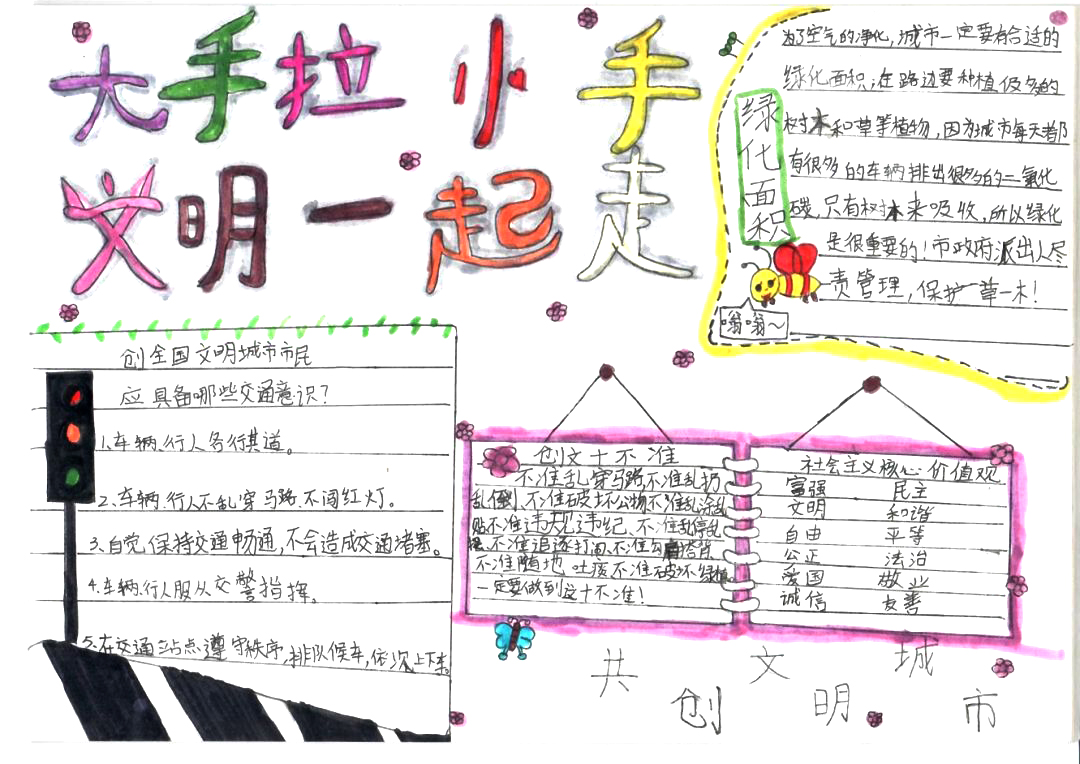 大手拉小手
文明一起走
绿化面积
为了空气的净化，城市一定要有合适的
绿化面积，在路边要种植很多的
树木和草等植物，因为城市每天都
有很多的车辆排出很多的二氧化
碳，只有树木来吸收，所以绿化
是很重要的！市政府派出人尽
责管理，保护一草一木！
嗡嗡～
创全国文明城市市民
应具备哪些交通意识？
1.车辆、行人各行其道。
2.车辆、行人不乱穿马路、不闯红灯。
3.自觉保持交通畅通，不会造成交通堵塞。
4.车辆、行人服从交警指挥。
5.在交通站点遵守秩序，排队候车，依次上下来。
创文十不准
不准乱穿马路、不准乱扔
乱倒、不准破坏公物、不准乱涂乱
贴、不准违规违纪、不准乱停乱
不准追逐打闹、不准勾肩搭背
不准随地吐痰、不准破坏绿植
一定要做到这十不准！
社会主义核心价值观
富强 民主
文明 和谐
自由 平等
公正 法治
爱国 敬业
诚信 友善
共创文明城市